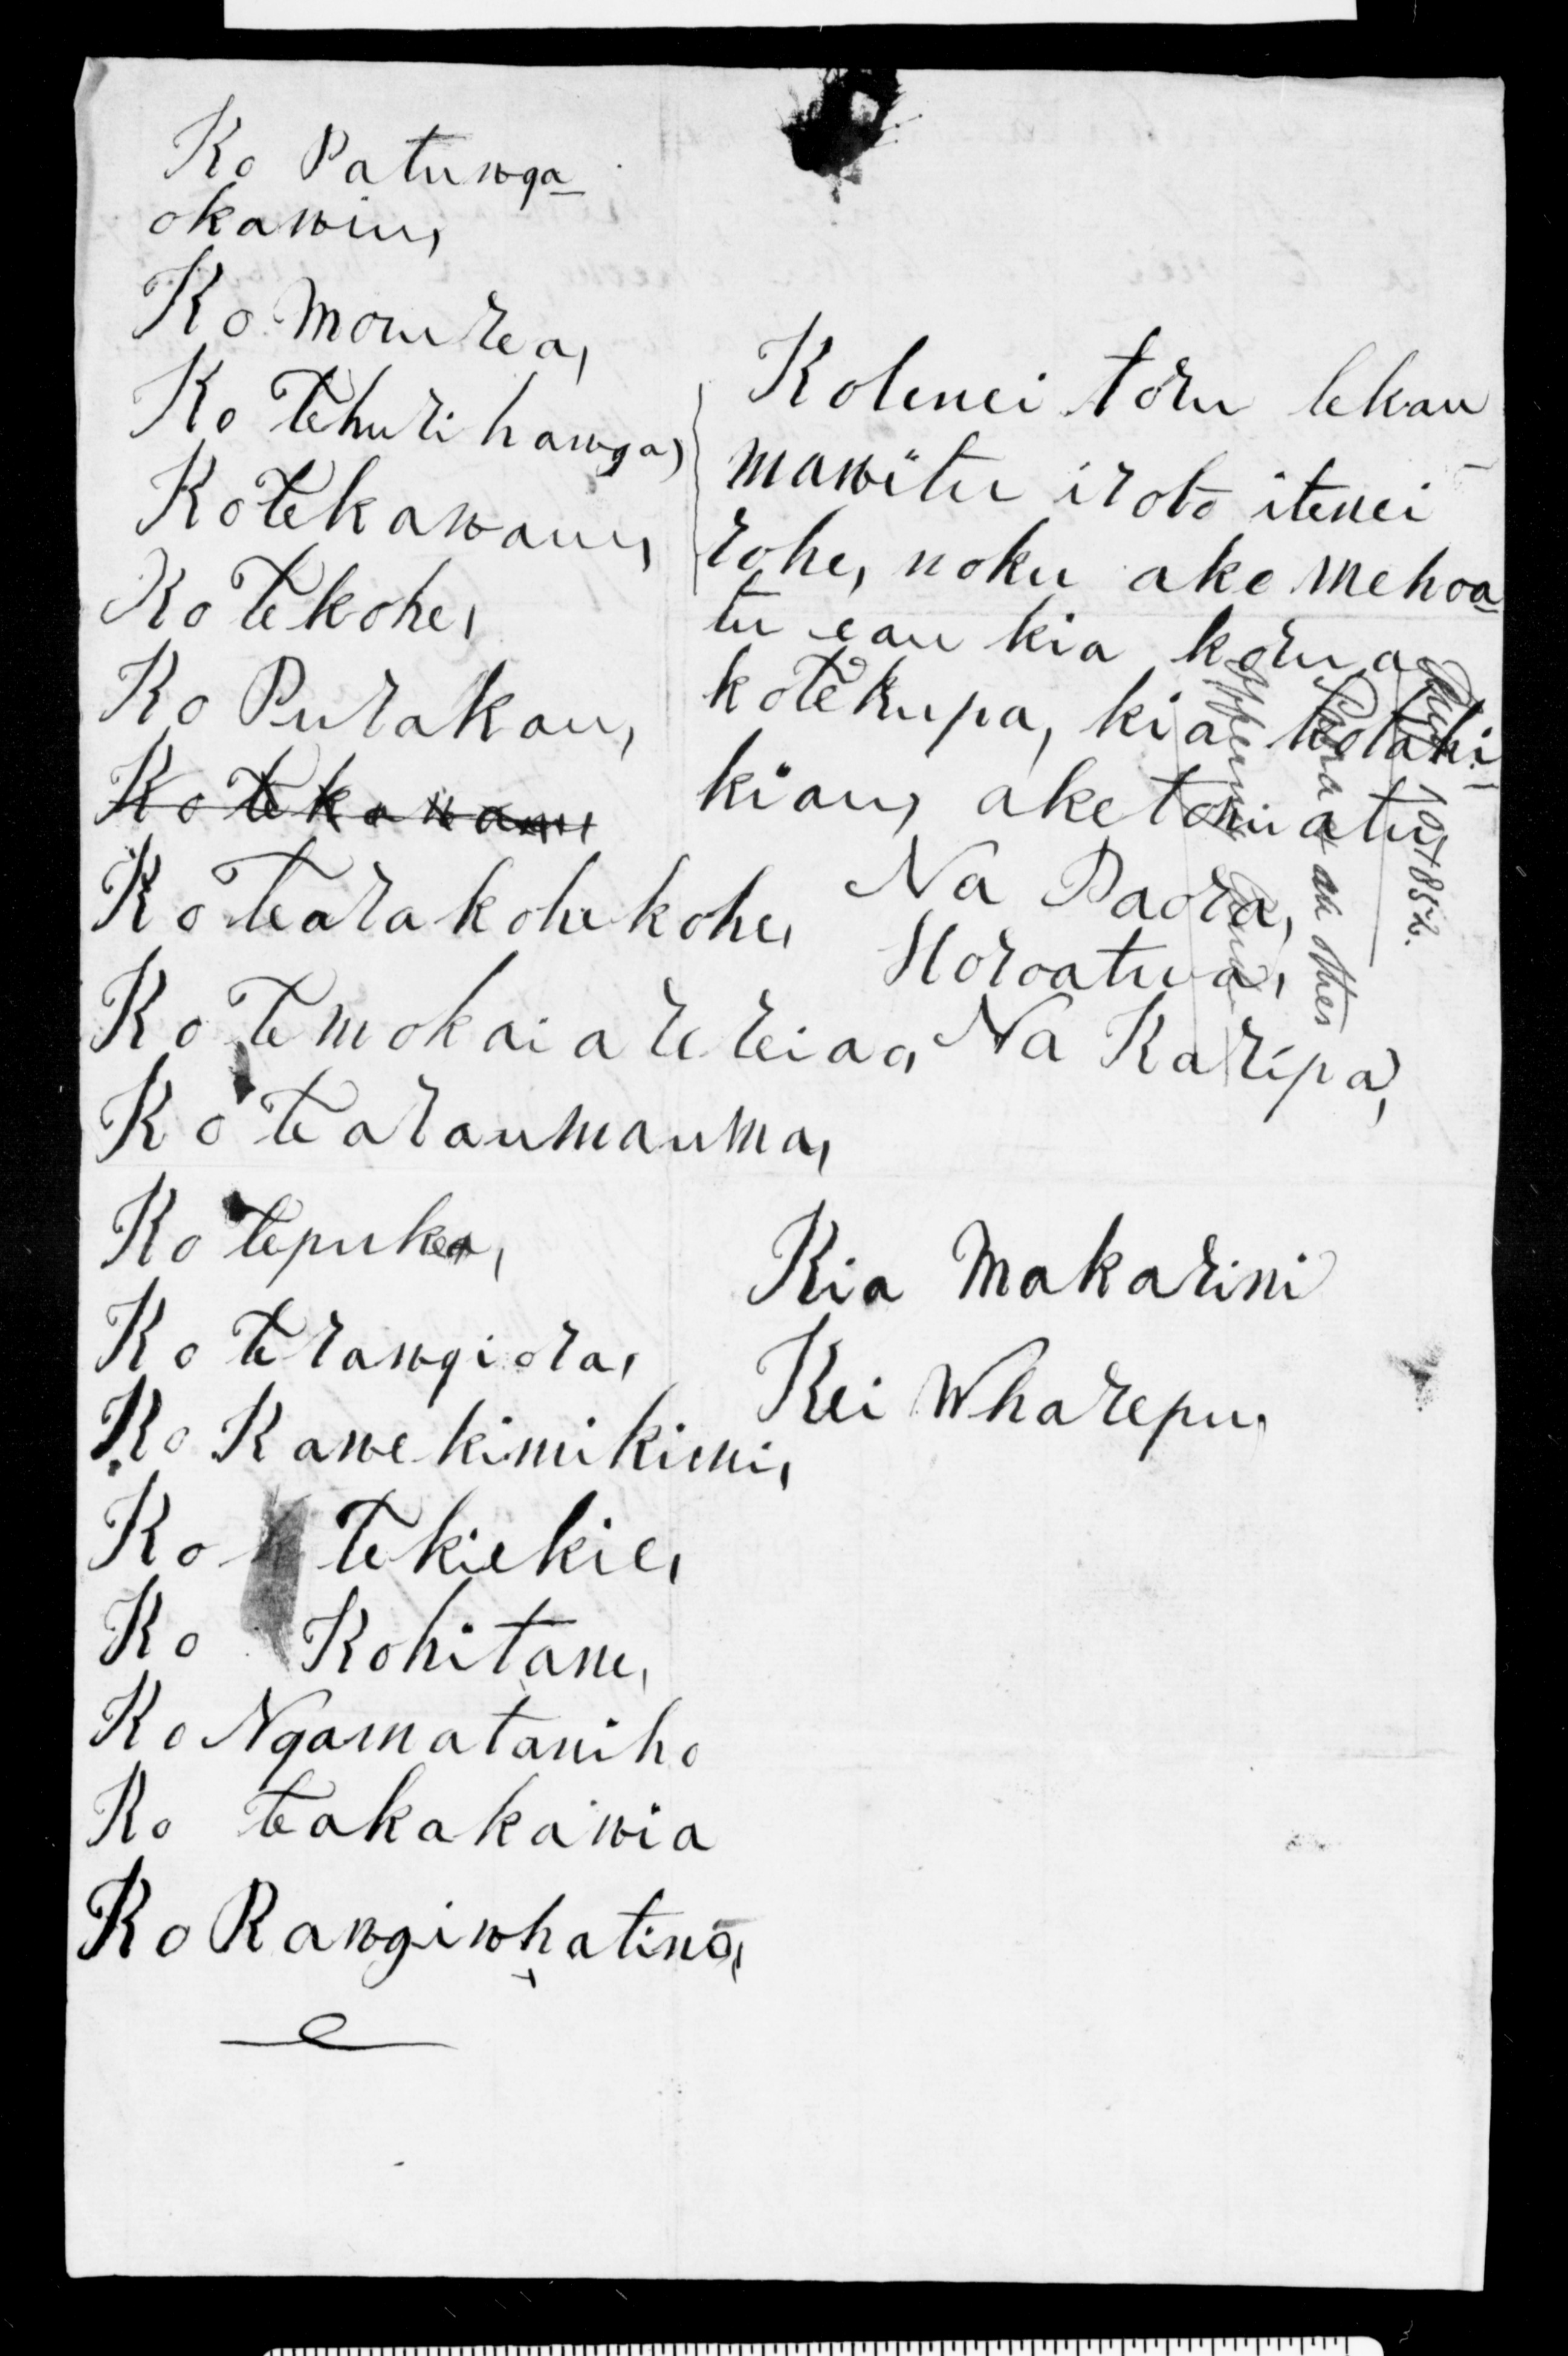 Ko Patunga=
okawiu,
Ko Mourea,
Ko Tehurihanga,
Kotekawau,
Ko Tekohe,
Ko Purakau,
Ko Tekawau,
Ko Tearakohekohe,
Ko Temokaiarereiao,
Ko Tearaumauma,
Ko Tepuke,
Ko Terangiora,
Ko Kawekimikimi,
Ko Tekiekie,
Ko Kohitane,
Ko Ngamataniho
Ko Teakakawia
Ko Rangiwhatino,
Kotenei toru tekau
mawitu iroto itenei
rohe, noku ake mehoa=
tu eau kia korua
kotekupa, kia kotahi
kiau, ake tonu atu
Na Paora,
Horoatua,
Na Karipa,
Kia Makarini
Kei Wharepu,
1852.
Paora & others
offering Land